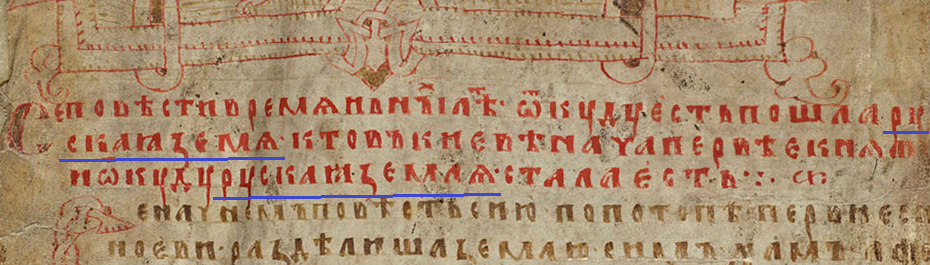 Се повѣсти времѧньнꙑⷯ лѣⷮ · ѿкуду єсть пошла ру
скаꙗ земѧ · кто въ києвѣ нача первѣє кнѧж
и ѿкуду рускаꙗ землѧ стала єсть ·:·
повѣсть сию по потопѣ · перви є
ноєви · раздѣлиша землю · симъ · хамъ ·